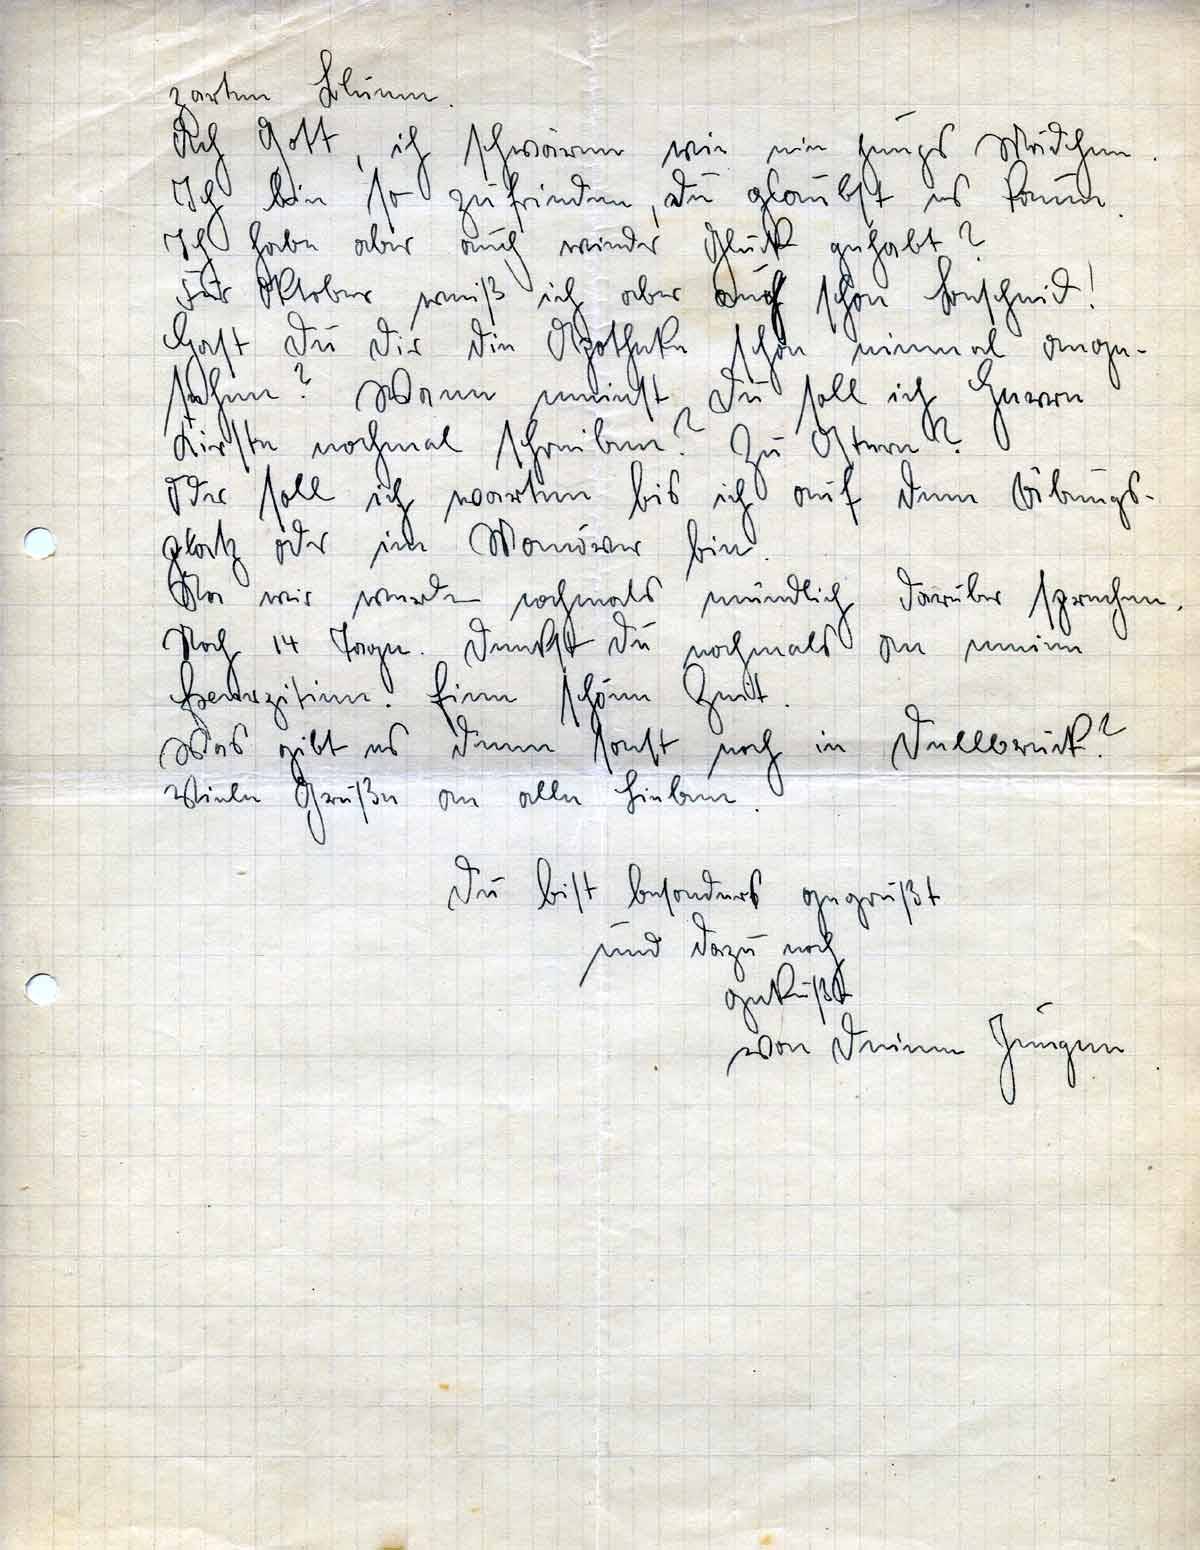 zarten Blumen.
Ach Gott, ich schwärme wie ein junges Mädchen.
Ich bin so zufrieden, Du glaubst es kaum.
Ich habe aber auch wieder Glück gehabt?
Für Oktober weiß ich aber auch schon Bescheid!
Hast Du Dir die Apotheke schon einmal ange-
sehen? Wann meinst Du soll ich Herrn
nochmal schreiben? Zu Ostern?
Oder soll ich warten bis ich auf dem Übungs-
platz oder im Manöver bin.
Na wir werden nochmals mündlich darüber sprechen.
Noch 14 Tage. Denkst Du nochmals an meine
Exerzitien. Eine schöne Zeit.
Was gibt es denn sonst noch in Dellbrück?
Viele Grüße an alle Lieben.
Du bist besonders gegrüßt
und dazu noch
geküßt
von Deinem Jungen